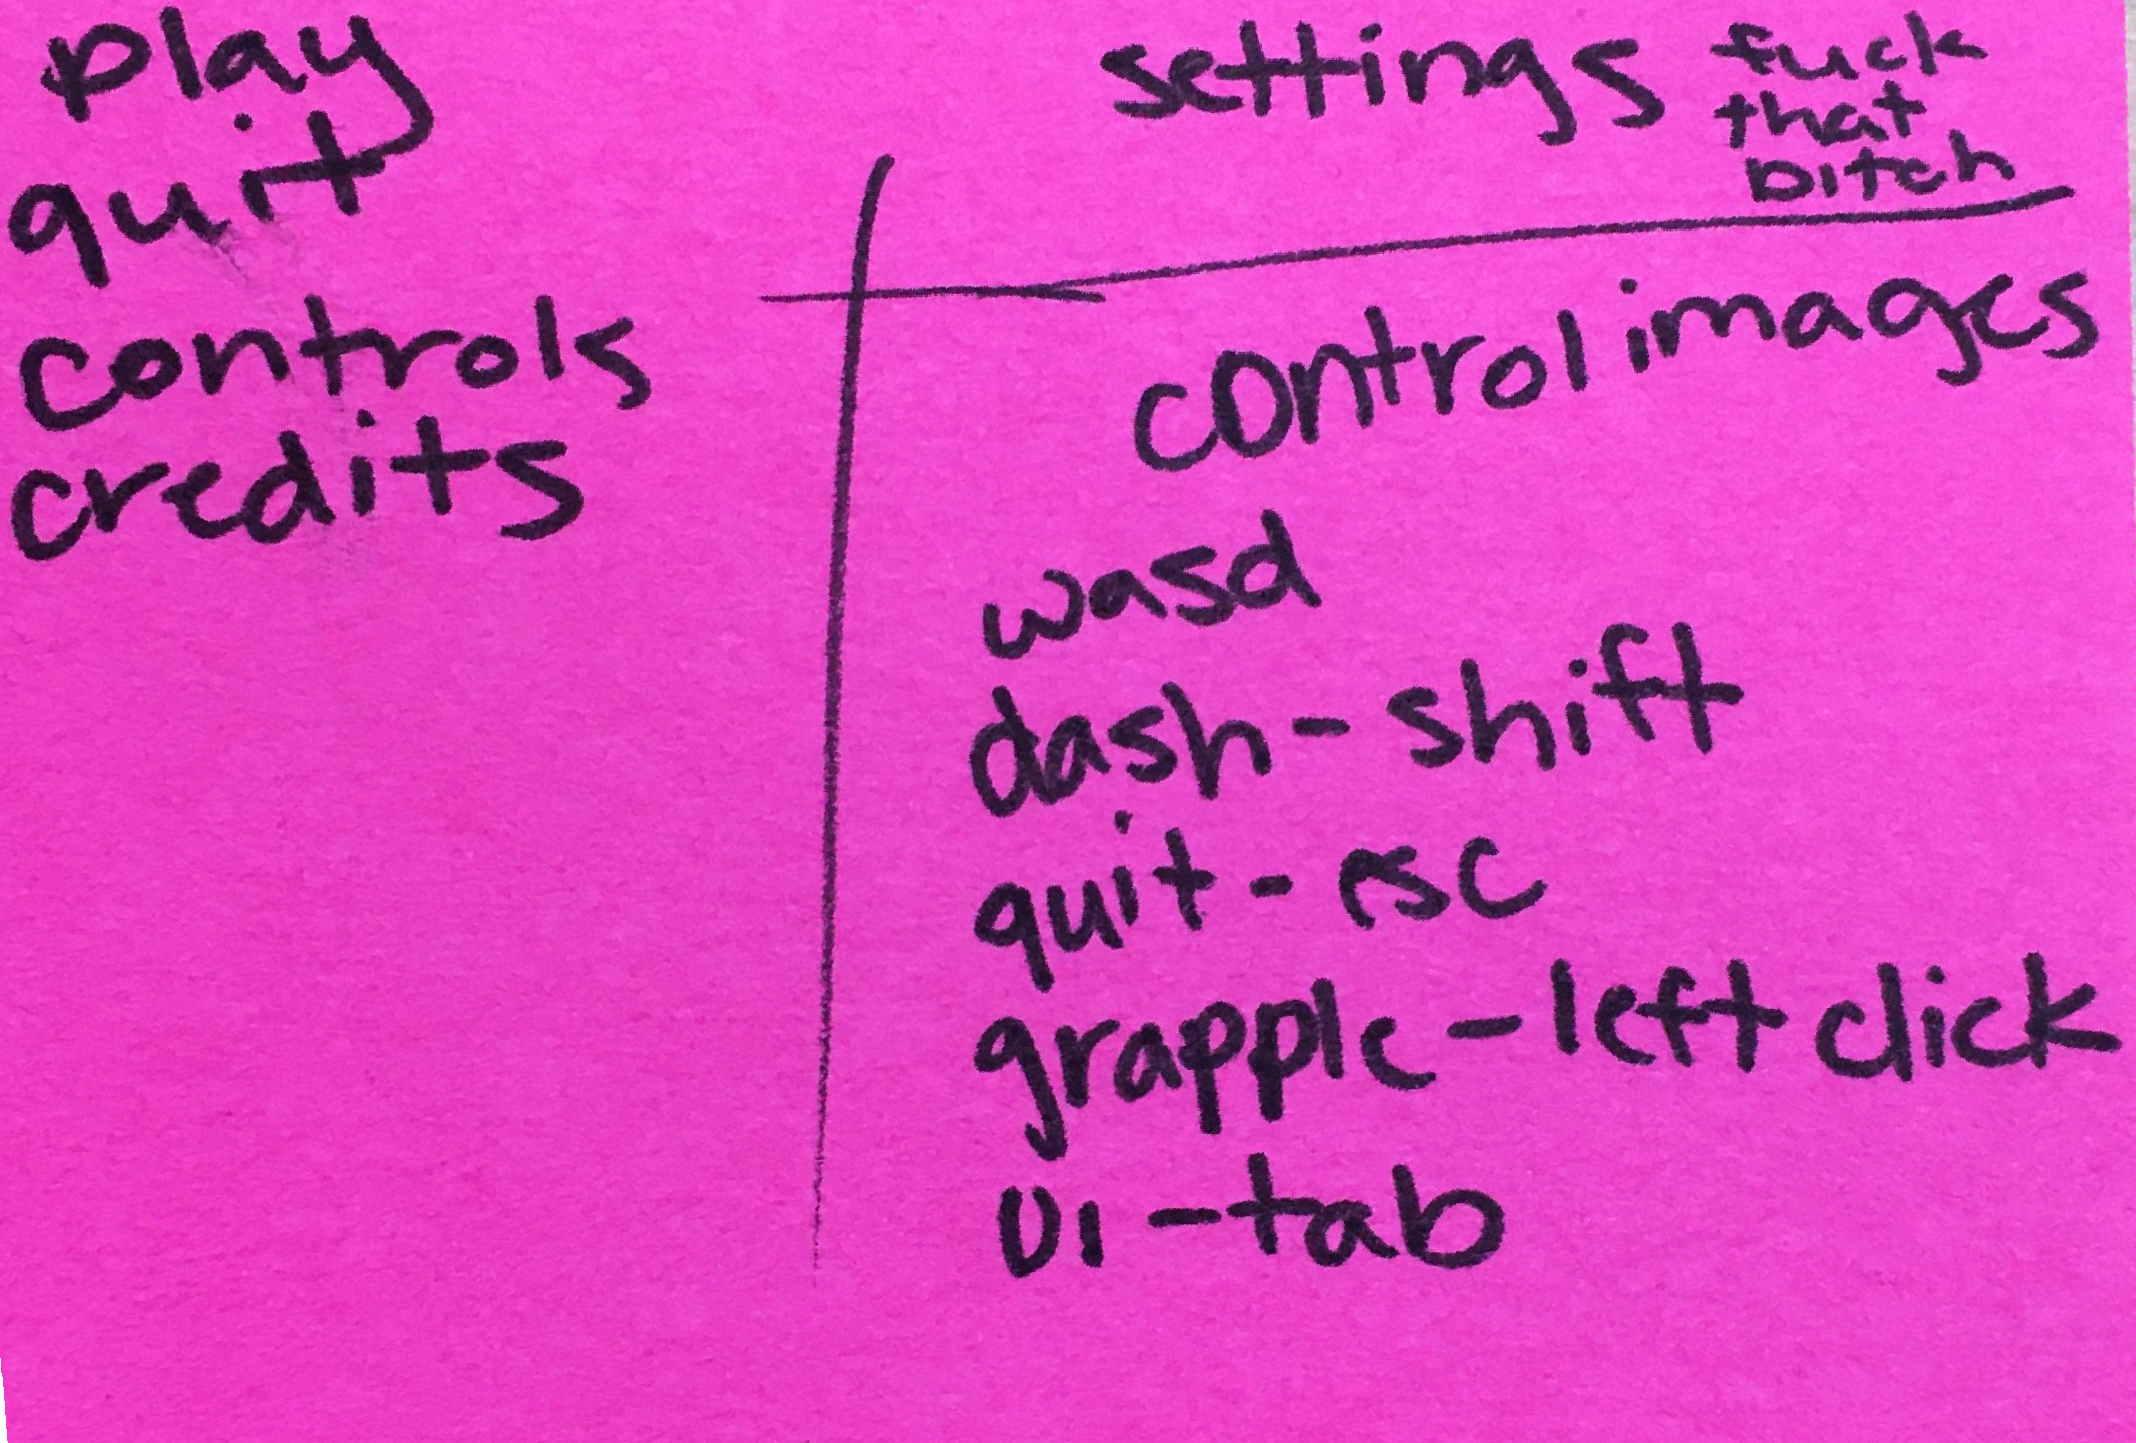 play
quit
controls
credits
settings fuck
that
bitch
control images
wasd
dash - shift
quit - esc
grapple - left click
UI - tab